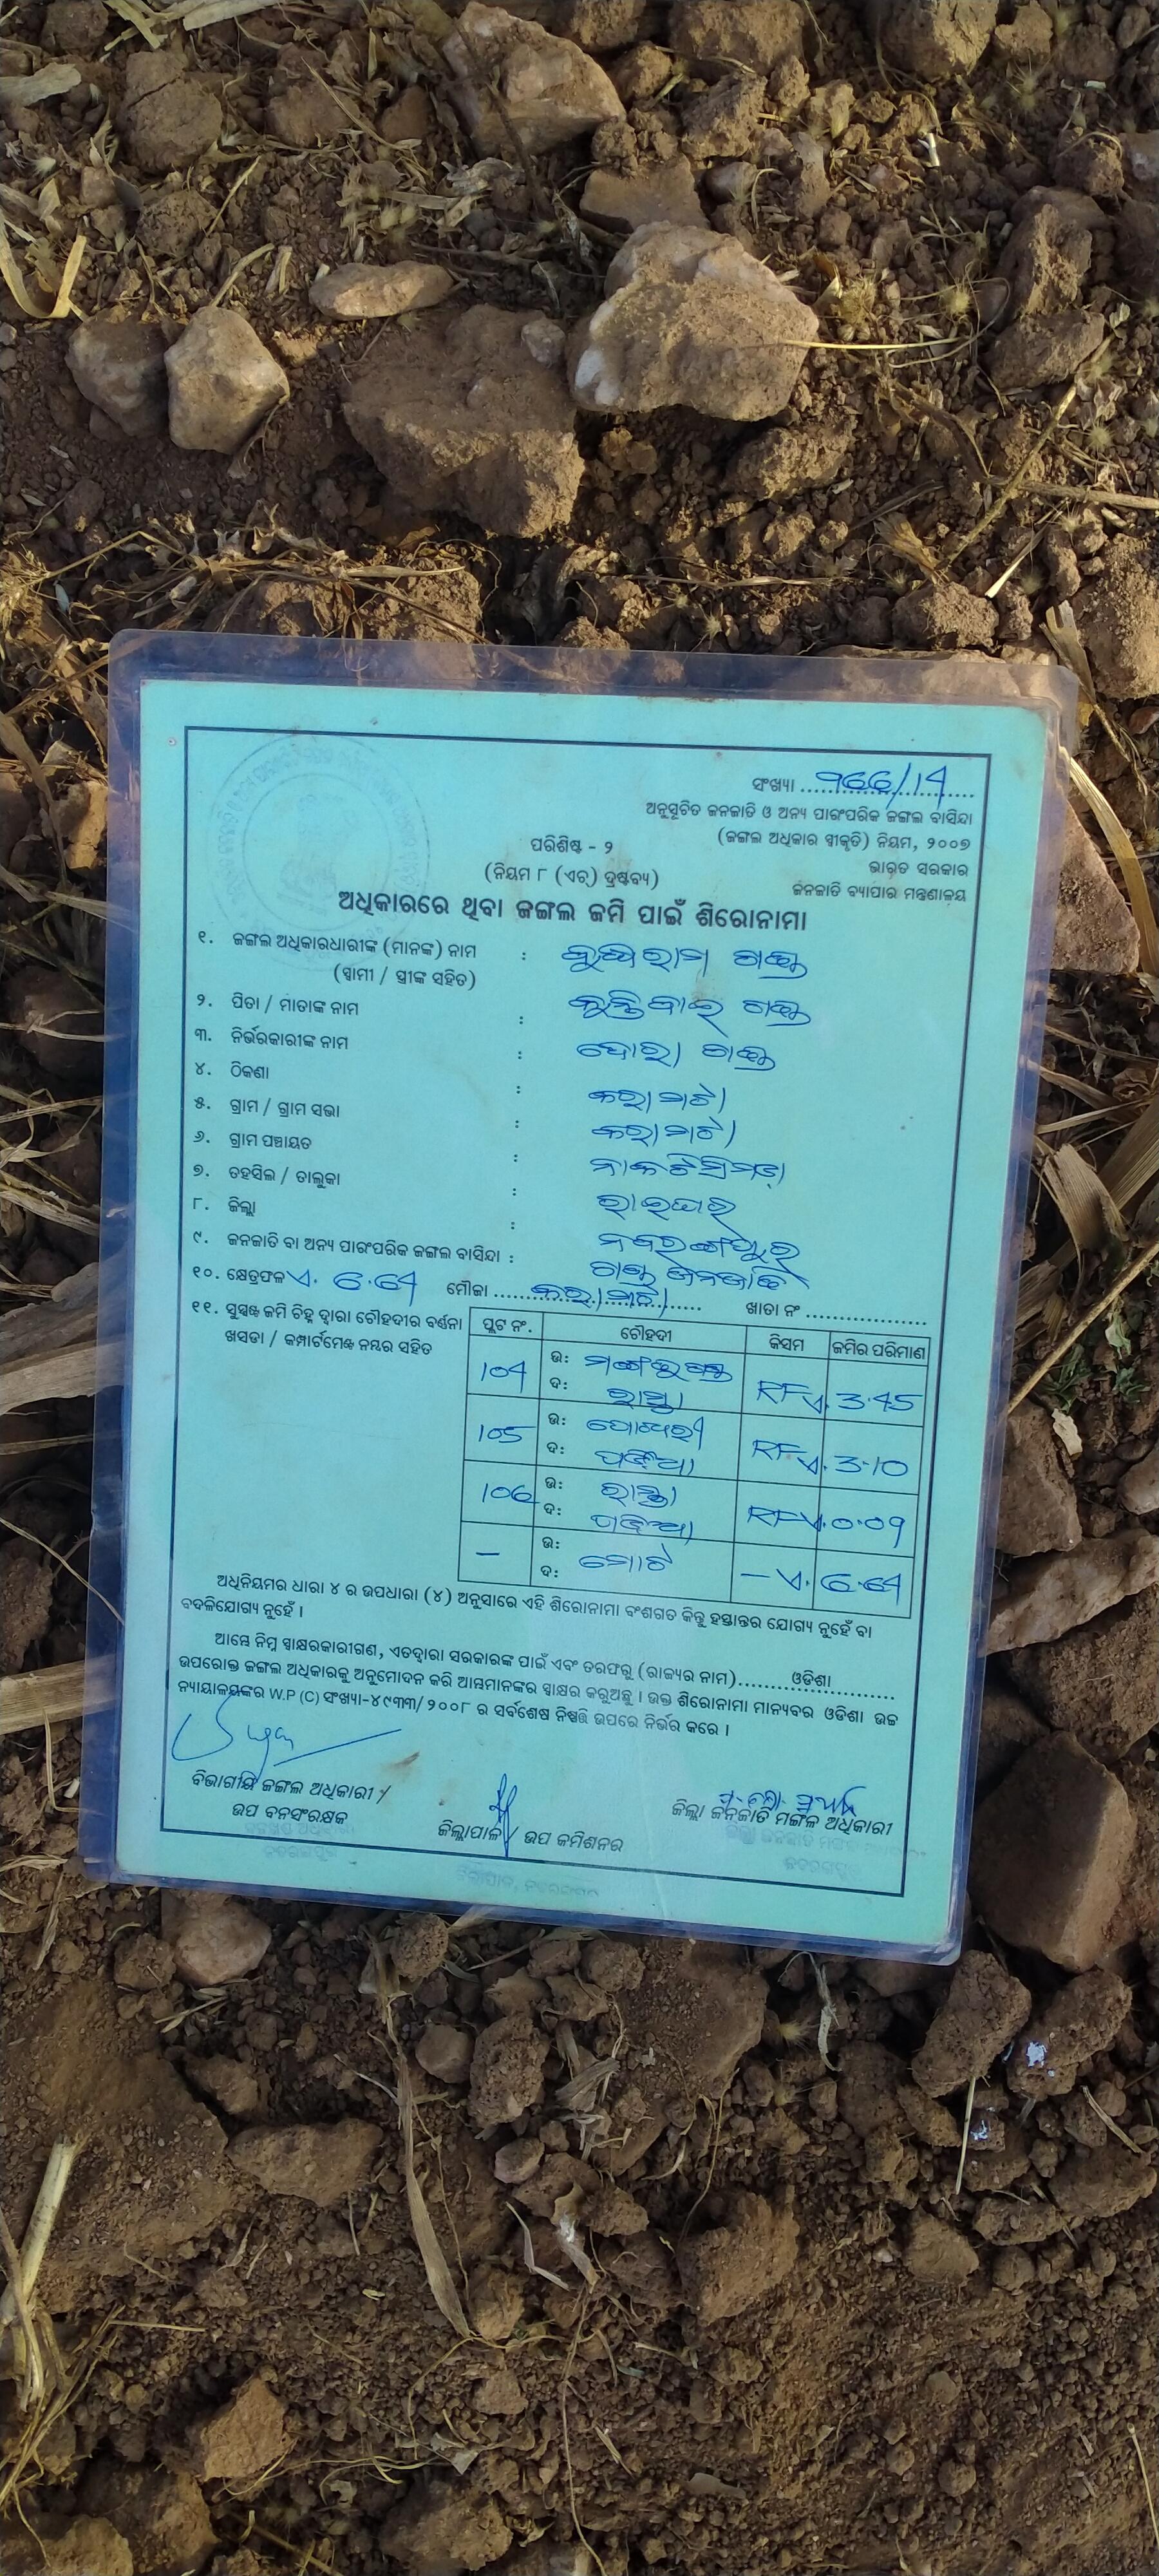 ସଂଖ୍ୟା ....966/14....
ଅନୁସୂଚିତ ଜନଜାତି ଓ ଅନ୍ୟ ପାରଂପରିକ ଜଙ୍ଗଲ ବାସିନ୍ଦା
(ଜଙ୍ଗଲ ଅଧିକାର ସ୍ୱୀକୃତି) ନିୟମ, ୨୦୦୭
ଭାରତ ସରକାର
ଜନଜାତି ବ୍ୟାପାର ମନ୍ତ୍ରଣାଳୟ
ପରିଶିଷ୍ଟ - ୨
(ନିୟମ ୮ (ଏଚ୍) ଦ୍ରଷ୍ଟବ୍ୟ)
ଅଧିକାରରେ ଥିବା ଜଙ୍ଗଲ ଜମି ପାଇଁ ଶିରୋନାମା
୧. ଜଙ୍ଗଲ ଅଧିକାରଧାରୀଙ୍କ (ମାନଙ୍କ) ନାମ : ବୁଦ୍ଧୁରାମ ଗଣ୍ଡ
(ସ୍ୱାମୀ / ସ୍ତ୍ରୀଙ୍କ ସହିତ) କୁନ୍ତିବାଇ ଗଣ୍ଡ
୨. ପିତା / ମାତାଙ୍କ ନାମ :
୩. ନିର୍ଭରକାରୀଙ୍କ ନାମ :
୪. ଠିକଣା : କରାମାଟି
୫. ଗ୍ରାମ / ଗ୍ରାମ ସଭା : କରାମାଟି
୬. ଗ୍ରାମ ପଞ୍ଚାୟତ :
୭. ତହସିଲ / ତାଲୁକା : ରାଇଘର
୮. ଜିଲ୍ଲା : ନବରଙ୍ଗପୁର
୯. ଜନଜାତି ବା ଅନ୍ୟ ପାରଂପରିକ ଜଙ୍ଗଲ ବାସିନ୍ଦା : ଗଣ୍ଡ ଜନଜାତି
୧୦. କ୍ଷେତ୍ରଫଳ ଏ. 6.64 ମୌଜା ....କରାମାଟି.... ଖାତା ନଂ ..................
୧୧. ସୁସ୍ପଷ୍ଟ ଜମି ଚିହ୍ନ ଦ୍ୱାରା ଚୌହଦୀର ବର୍ଣ୍ଣନା
ଖସଡା / କମ୍ପାର୍ଟମେଣ୍ଟ ନମ୍ବର ସହିତ
ପ୍ଲଟ ନଂ. ଚୌହଦୀ କିସମ ଜମିର ପରିମାଣ
104 ଉ: RF ଏ. 3.45
ଦ: ରାସ୍ତା
105 ଉ: ପୋଖରୀ RF ଏ. 3.10
ଦ: ପଡ଼ିଆ
106 ଉ: ରାସ୍ତା RF ଏ. 0.09
ଦ: ପଡ଼ିଆ
— ଉ: ମୋଟ — ଏ. 6.64
ଦ:
ଅଧିନିୟମର ଧାରା ୪ ର ଉପଧାରା (୪) ଅନୁସାରେ ଏହି ଶିରୋନାମା ବଂଶଗତ କିନ୍ତୁ ହସ୍ତାନ୍ତର ଯୋଗ୍ୟ ନୁହେଁ ବା
ବଦଳିଯୋଗ୍ୟ ନୁହେଁ ।
ଆମ୍ଭେ ନିମ୍ନ ସ୍ୱାକ୍ଷରକାରୀଗଣ, ଏତଦ୍ୱାରା ସରକାରଙ୍କ ପାଇଁ ଏବଂ ତରଫରୁ (ରାଜ୍ୟର ନାମ)........ଓଡିଶା..........
ଉପରୋକ୍ତ ଜଙ୍ଗଲ ଅଧିକାରକୁ ଅନୁମୋଦନ କରି ଆମ୍ଭମାନଙ୍କର ସ୍ୱାକ୍ଷର କରୁଅଛୁ । ଉକ୍ତ ଶିରୋନାମା ମାନ୍ୟବର ଓଡିଶା ଉଚ୍ଚ
ନ୍ୟାୟାଳୟଙ୍କର W.P (C) ସଂଖ୍ୟା-୪୯୩୩/୨୦୦୮ ର ସର୍ବଶେଷ ନିଷ୍ପତ୍ତି ଉପରେ ନିର୍ଭର କରେ ।
ବିଭାଗୀୟ ଜଙ୍ଗଲ ଅଧିକାରୀ /
ଉପ ବନସଂରକ୍ଷକ
ଜିଲ୍ଲାପାଳ / ଉପ କମିଶନର
ଜିଲ୍ଲା ଜନଜାତି ମଙ୍ଗଳ ଅଧିକାରୀ